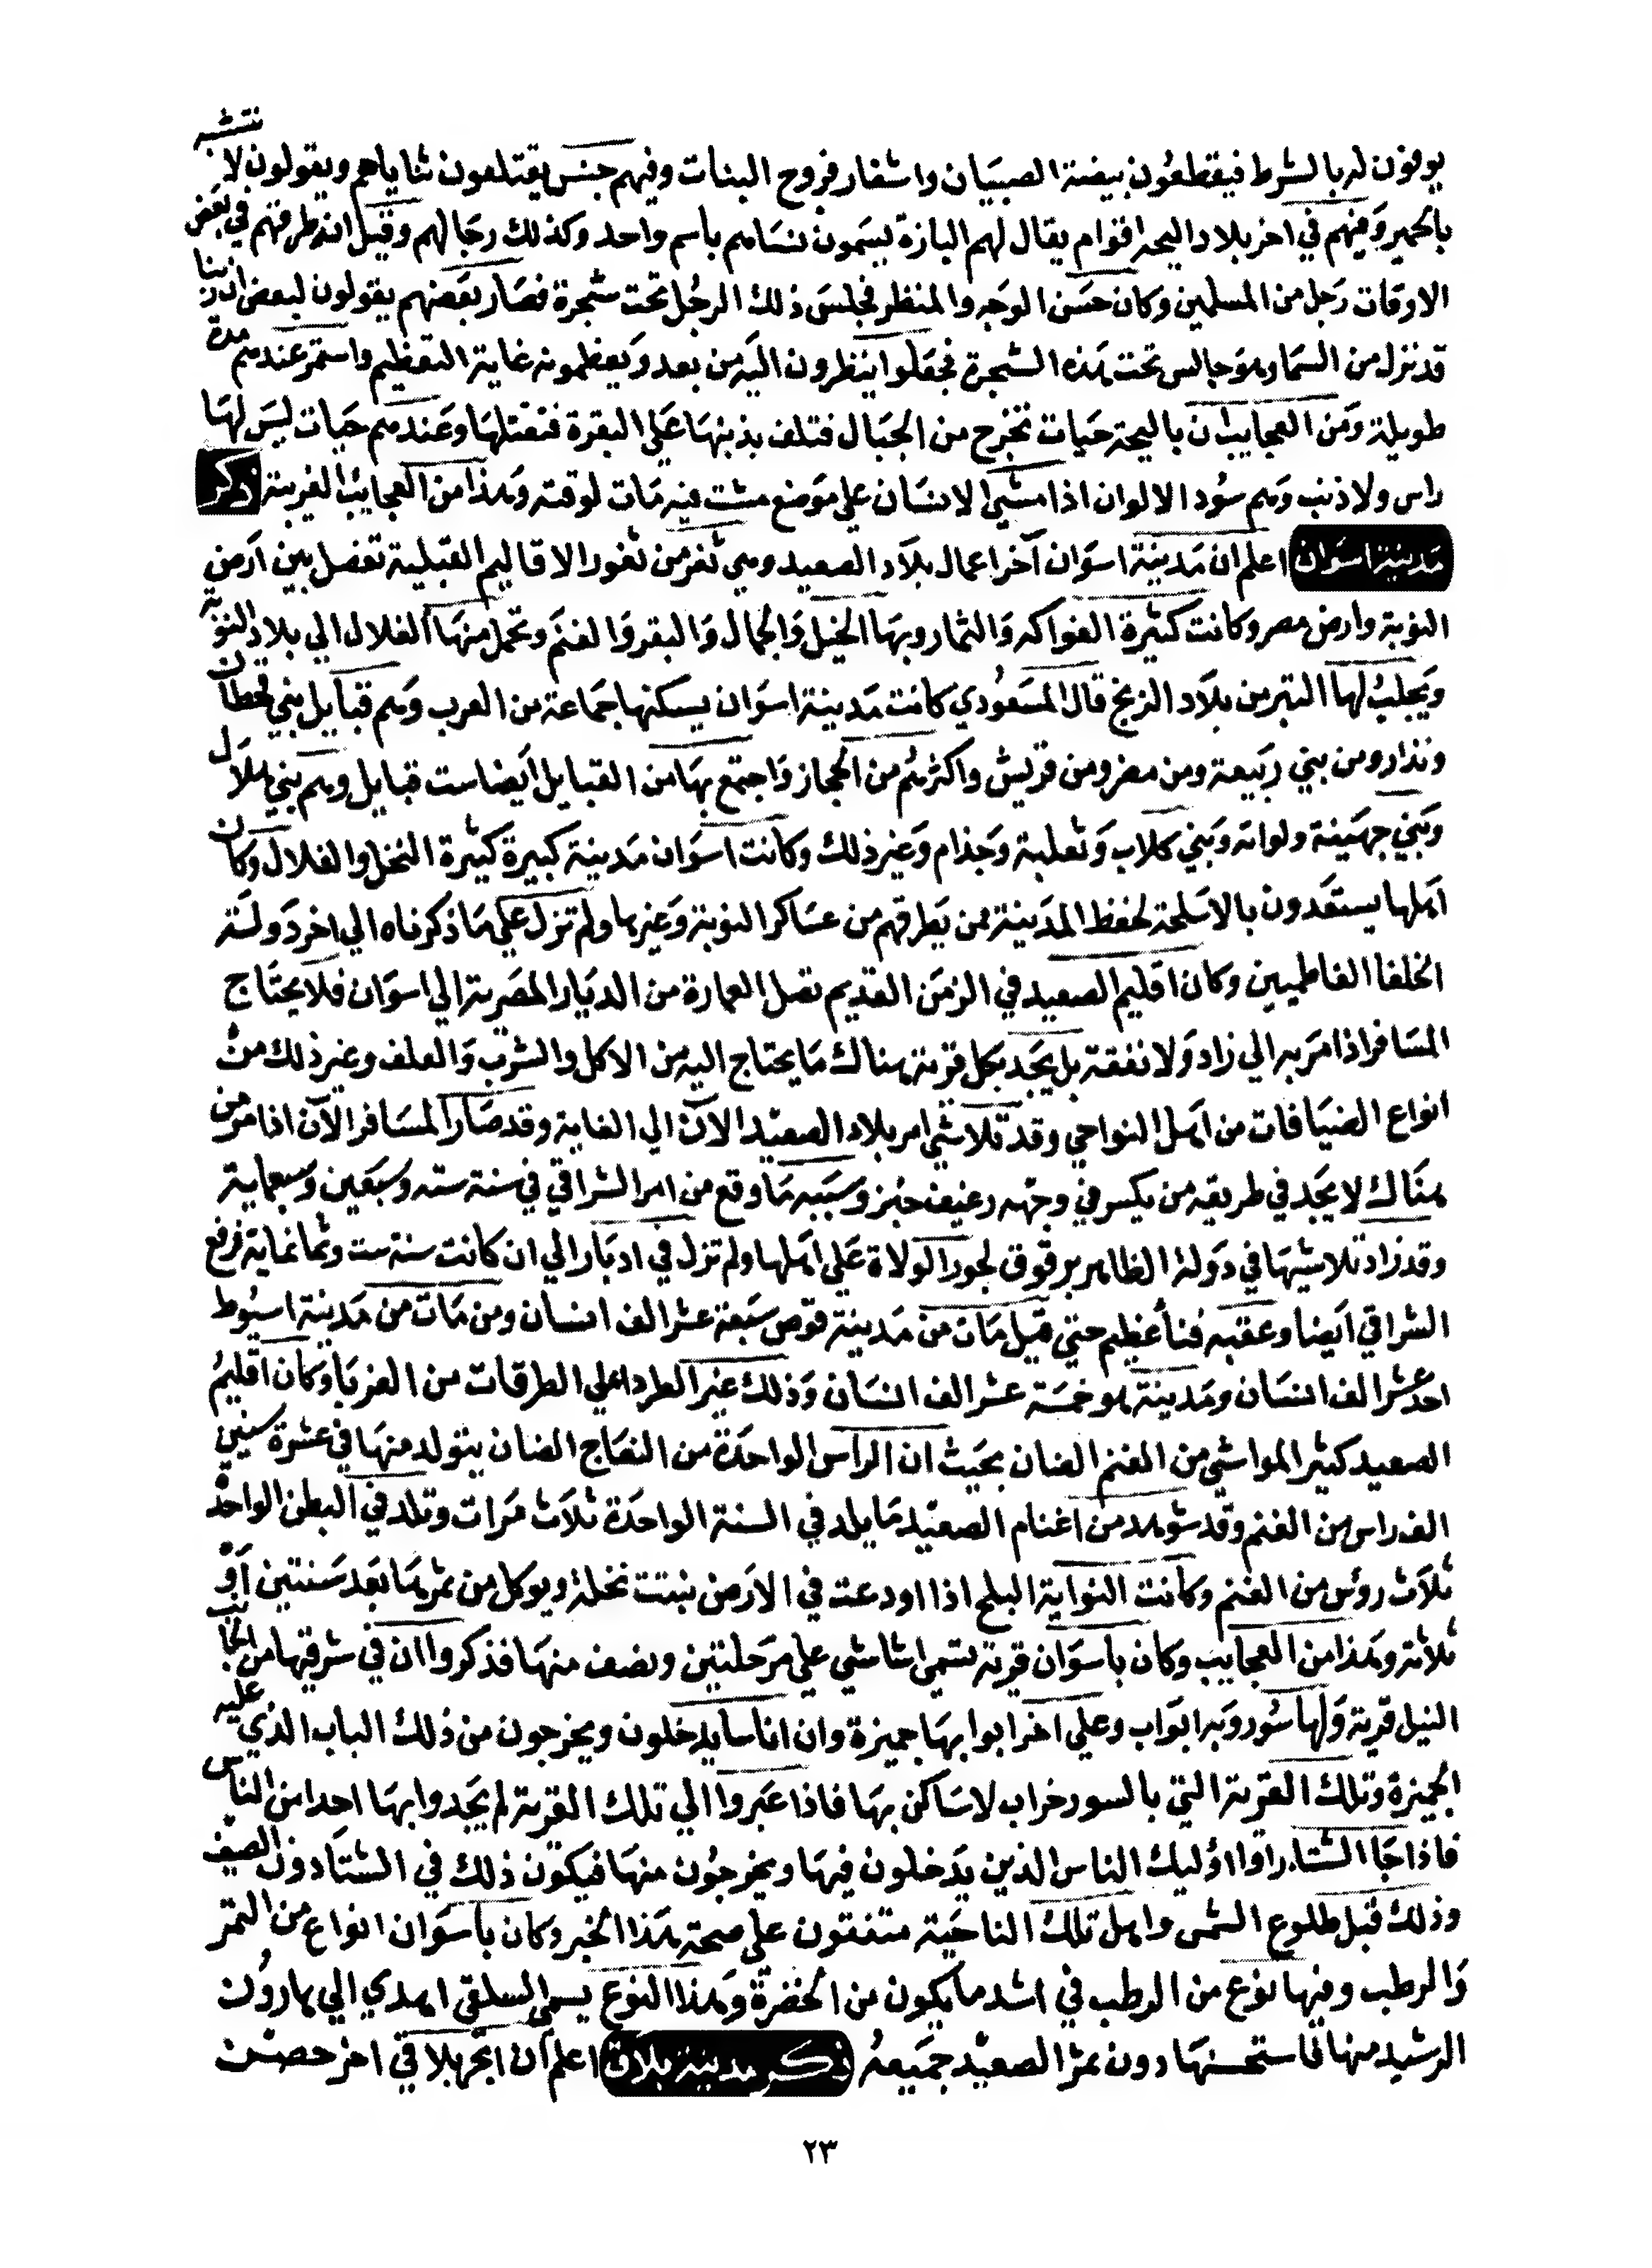 يوفون له بالشرط فيقطعون بيضة الصبيان واشفار فروج البنات وفيهم جنس يقتلعون ثناياهم ويقولون لا نتشبه
بالحمير وفيهم في اخر بلاد البجه اقوام يقال لهم البازة يسمون نساهم باسم واحد وكذلك رجالهم وقيل انه طرقهم في بعض
الاوقات رجل من المسلمين وكان حسن الوجه والمنظر فجلس ذلك الرجل تحت شجرة فصار بعضهم يقولون لبعض ان ربنا
قد نزل من السما وهو جالس تحت هذه الشجرة فجعلوا ينظرون اليه من بعد ويعظمونه غاية التعظيم واستمر عندهم مدة
طويلة ومن العجايب ان بالبجة حيات تخرج من الجبال فتلف بذنبها علي البقرة فتقتلها وعندهم حيات ليس لها
راس ولا ذنب وهم سود الالوان اذا مشي الانسان علي موضع مشت فيه مات لوقته وهذا من العجايب الغريبة ذكر
مدينة اسوان اعلم ان مدينة اسوان آخر اعمال بلاد الصعيد وهي ثغر من ثغور الاقاليم القبلية تفصل بين ارض
النوبة وارض مصر وكانت كثيرة الفواكه والثمار وبها الخيل والجمال والبقر والغنم وتحمل منها الغلال الي بلاد النوبة
ويجلب لها التبر من بلاد الزنج قال المسعودي كانت مدينة اسوان يسكنها جماعة من العرب وهم قبايل بني قحطان
ونذار ومن بني ربيعة ومن مضر ومن قريش واكثرهم من الحجاز واجتمع بها من القبايل ايضا ست قبايل وهم بني هلال
وبني جهينة ولواته وبني كلاب وثعلبة وجذام وغير ذلك وكانت اسوان مدينة كبيرة كثيرة النخل والغلال وكان
اهلها يستعدون بالاسلحة لحفظ المدينة ممن يطرقهم من عساكر النوبة وغيرها ولم تزل علي ما ذكرناه الي اخر دولة
الخلفا الفاطميين وكان اقليم الصعيد في الزمن القديم تصل العمارة من الديار المصرية الي اسوان فلا يحتاج
المسافر اذا مر به الي زاد ولا نفقة بل يجد بكل قرية هناك ما يحتاج اليه من الاكل والشرب والعلف وغير ذلك من
انواع الضيافات من اهل النواحي وقد تلاشي امر بلاد الصعيد الان الي الغاية وقد صار المسافر الآن اذا مر من
هناك لا يجد في طريقه من يكسر في وجهه رغيف خبز وسببه ما وقع من امر الشراقي في سنة سته وسبعين وسبعماية
وقد زاد تلاشيها في دولة الظاهر برقوق لجور الولاة علي اهلها ولم تزل في ادبار الي ان كانت سنة ست وثمانماية فرفع
الشراقي ايضا وعقبه فناً عظيم حتي قيل مات من مدينة قوص سبعة عشر الف انسان ومن مات من مدينة اسيوط
احد عشر الف انسان ومدينة هو خمسة عشر الف انسان وذلك غير الطرداعلي الطرقات من الغربا وكان اقليم
الصعيد كثير المواشي من الغنم الضان بحيث ان الراس الواحدة من النعاج الضان يتولد منها في عشرة سنين
الف راس من الغنم وقد شوهد من اغنام الصعيد ما يلد في السنة الواحدة ثلاث مرات وتلد في البطن الواحد
ثلاث روس من الغنم وكانت النواية البلح اذا اودعت في الارض نبتت نخلة ويوكل من ثمرها بعد سنتين او
ثلاثة وهذا من العجايب وكان باسوان قرية تسمي اشاشي علي مرحلتين ونصف منها فذكروا ان في شرقيها من الجانب
النيل قرية ولها سور وبه ابواب وعلي اخر ابوابها جميزة وان اناسا يدخلون ويخرجون من ذلك الباب الذي عليه
الجميزة وتلك القرية التي بالسور خراب لا ساكن بها فاذا عبروا الي تلك القرية لم يجدوا بها احدا من الناس
فاذا جا الشتا راوا اوليك الناس الذين يدخلون فيها ويخرجون منها فيكون ذلك في الشتا دون الصيف
وذلك قبل طلوع الشمس واهل تلك الناحية متفقون علي صحة هذا الخبر وكان باسوان انواع من التمر
والرطب وفيها نوع من الرطب في اشد ما يكون من الخضرة وهذا النوع يسمي السلقي اهدي الي هارون
الرشيد منها فاستحسنها دون تمر الصعيد جميعه ذكر مدينة بلاق اعلم ان ابجر بلاقي اخر حصن
٢٣